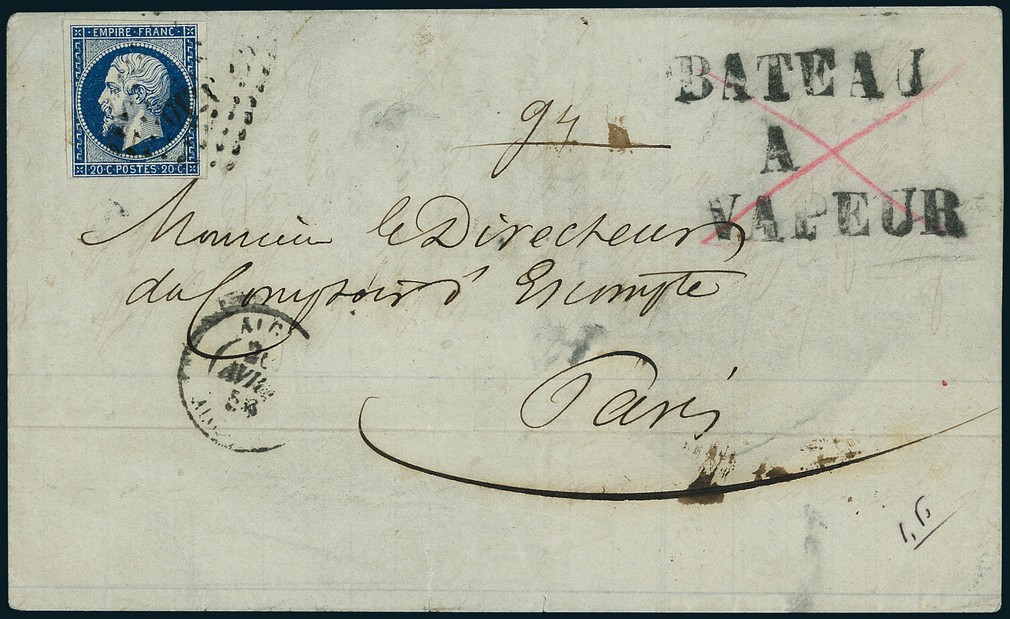 EMPIRE FRANC
20·C·POSTES·20·C
BATEAU
A
VAPEUR
94
Monsieur le Directeur
du Comptoir d'Escompte
Paris
AVRIL
58